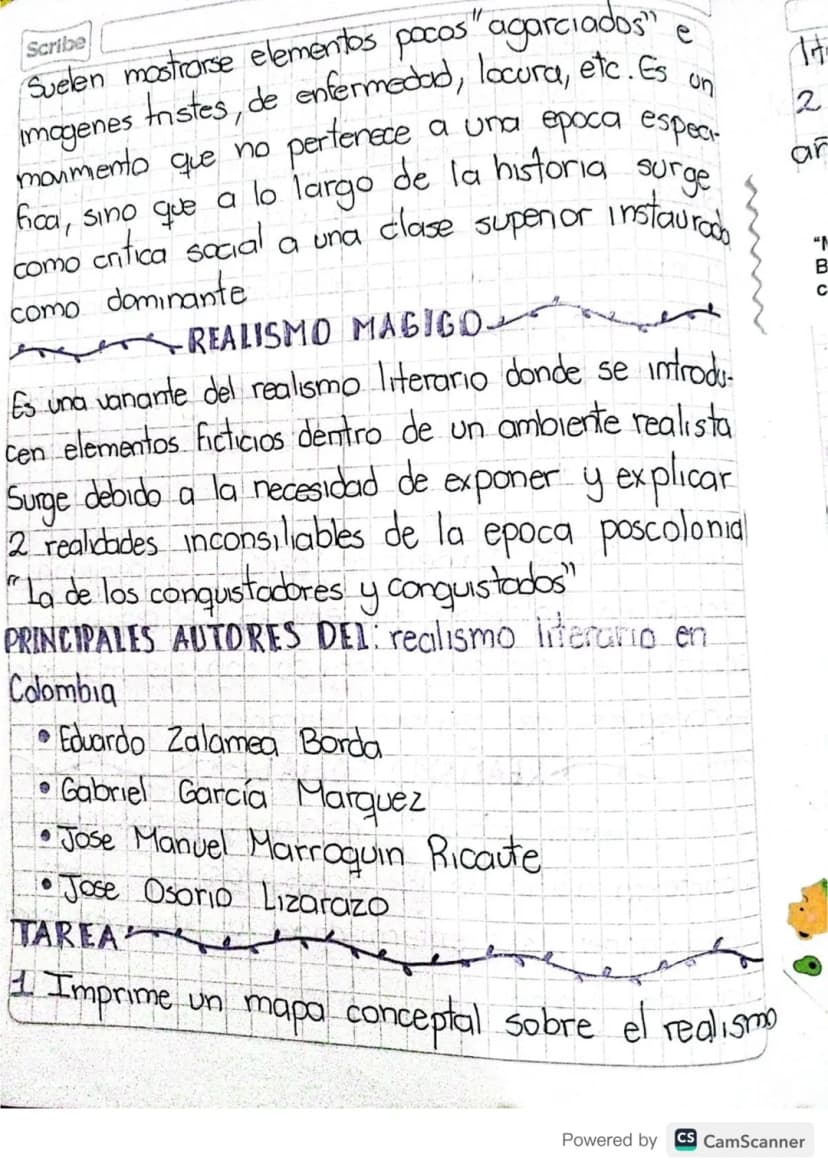 Scribe
Suelen mostrarse elementos pocos "agarciados" e
imagenes tristes, de enfermedad, locura, etc. Es un
movimento que no pertenece a una epoca especi-
fica, sino que a lo largo de la historia surge
como critica social a una clase superior instaurada
como dominante
REALISMO MAGICO
Es una variante del realismo literario donde se introdu-
cen elementos ficticios dentro de un ambiente realista
Surge debido a la necesidad de exponer y explicar
2 realidades inconsiliables de la epoca poscolonial
"La de los conqustadores y conquistados"
PRINCIPALES AUTORES DEL: realismo literario en
Colombia
• Eduardo Zalamea Borda
• Gabriel García Marquez
• Jose Manuel Marroquin Ricaute
• Jose Osorio Lizarazo
TAREA
1 Imprime un mapa conceptal sobre el realismo
lit
2
"
B
c
Powered by CS CamScanner